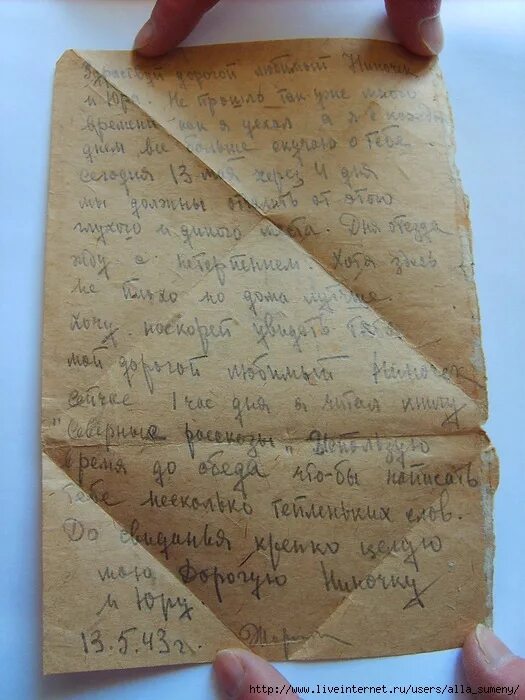 Здраствуй дорогой любимый Ниночек
и Юра. Не прошло так уже много
времени как я уехал а я с каждым
днем все больше скучаю о тебе
сегодня 13 мая через 4 дня
мы должны от этого
глухого и дикого места. Дня отезда
жду с нетерпением. Хотя здесь
не плохо но дома лутше.
Хочу поскорей увидать тебя
мой дорогой любимый Ниночек
сейчас 1 час дня я читал книгу
"Северные рассказы". Использую
время до обеда что-бы написать
тебе несколько тепленьких слов.
До свиданья крепко целую
мою Дорогую Ниночку
и Юру
13.5.43 г.
http://www.liveinternet.ru/users/alla_sumeny/